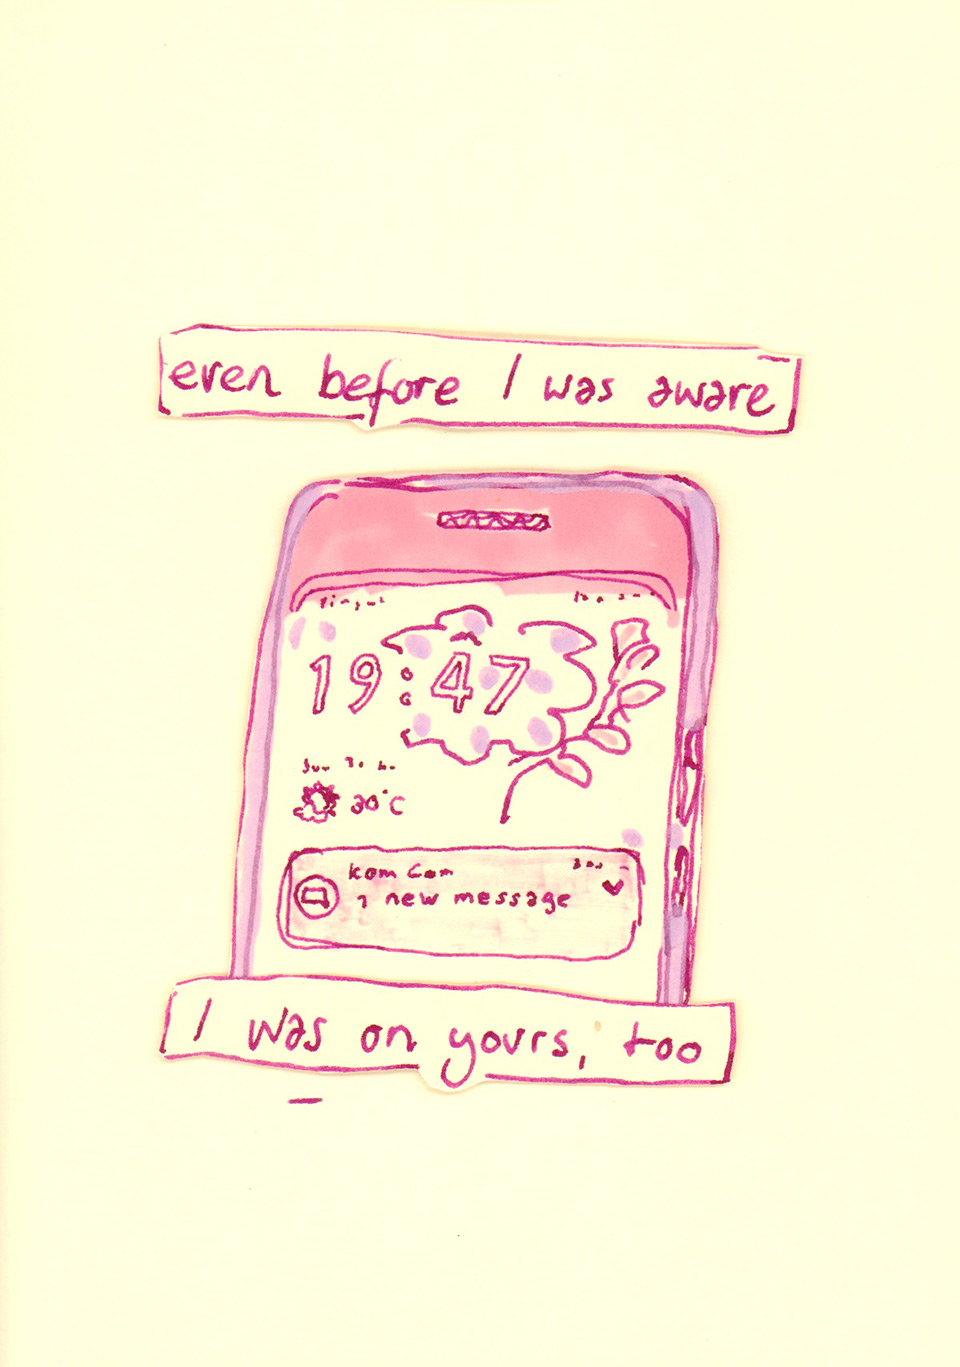 even before I was aware
19:47
20°C
Kom Com
1 new message
I was on yours, too